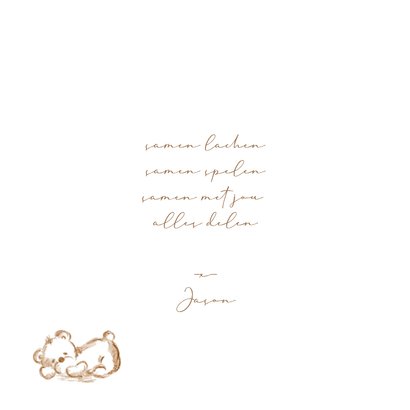 samen lachen
samen spelen
samen met jou
alles delen
x
Jason